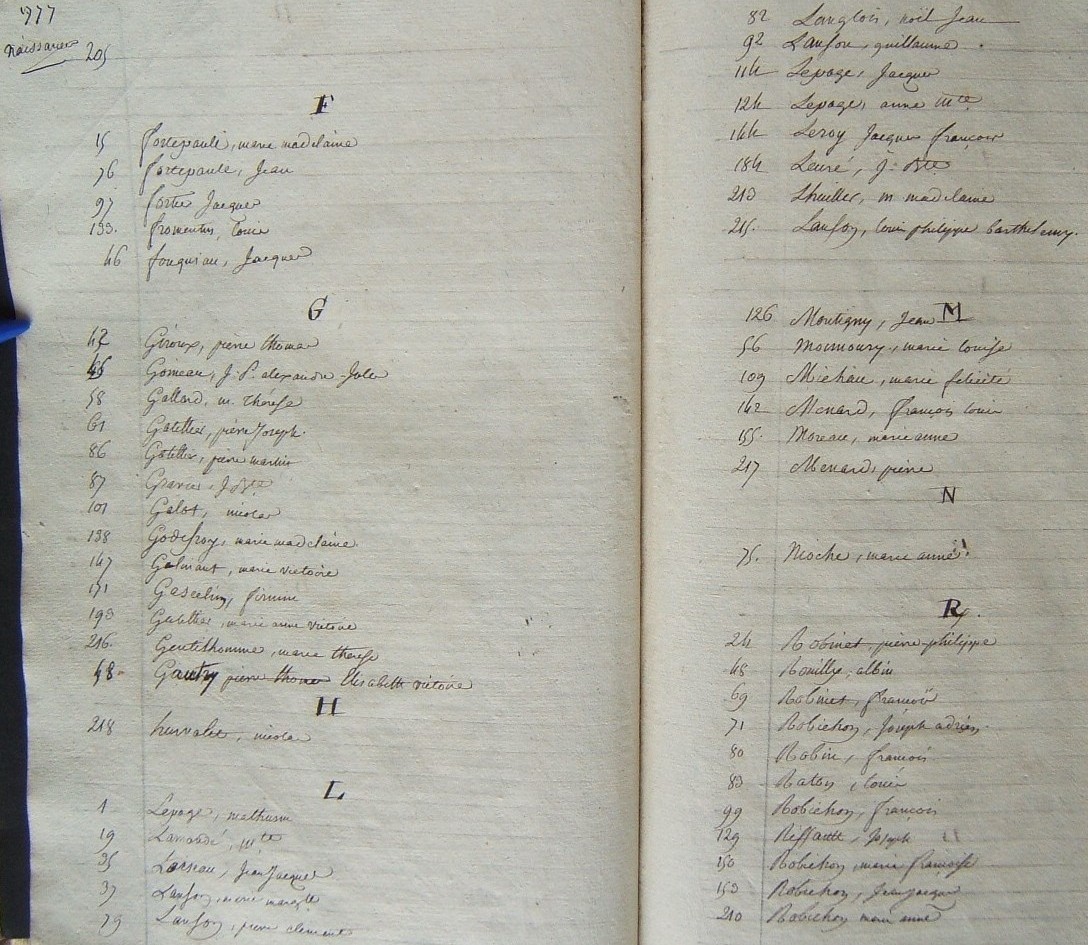 1777
naissances
205
F
15 fortepaule, marie madelaine
76 fortepaule, Jean
97 fortie Jacques
133. fromentin, louis
46 fouquiau, Jacques
G
42 Giroux, pierre thomas
45 Gomeau, J. P. alexandre Jules
58 Gallard, m. thérese
61 Gatellier, pierre Joseph.
86 Gatellier, pierre martin
87 Garnier, J Bte
101 Galot, nicolas
138 Godefroy, marie madelaine
147 marie victoire
171 Gascelin, firmin
198 marie anne victoire
216. Gentilhomme, marie therese
48. Gautry pierre thomas Elisabeth victoire
H
218 hurvalet, nicolas
L
1 Lepage, mathurin
19 Lamandé, mte
35 Loiseau, Jean Jacques
37 Lanson, marie margte
79 Lanson, pierre clement
82 Langlois, noël Jean
92 Lanson, guillaume
114 Lepage, Jacques
124 Lepage, anne mte
144 Leroy Jacques françois
184 Leuré, J. Bte
213 Lhuillier, m madelaine
215. Lanson, louis philippe barthelemy.
M
126 Montigny, Jean
56 Mormoury, marie louise
109 Michau, marie felicité
142 Menard, françois louis
155. Moreau, marie anne
217 Menard, pierre
N
75. Nioche, marie anne
R
24 Robinet, pierre philippe
48 Rouillye, albin
69 Robinet, françois
71 Robichon, Joseph adrien
80 Robin, françois
83 Raton, louis
99 Robichon, françois
129 Riffault, Joseph
150 Robichon, marie françoise
153 Robichon, Jean Jacques
210 Robichon marie anne